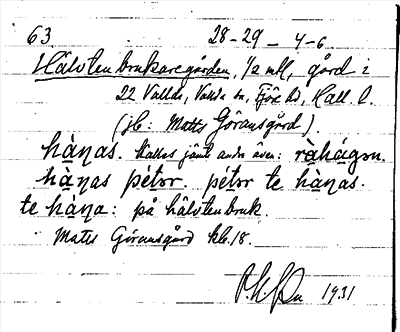 63. 28-29 - 4-6
Hålstenbrukaregården, 1/2 mtl, gård i
22 Vallda, Vallda sn, Fjäre hd, Hall. l.
(jb: Matts Göransgård).
hàŋas. Kallas jämt andra även: ràhágən.
hàŋas pétər. pétər te hàŋas.
te hàŋa: på hålstenbruk.
Matts Göransgård kl. 18.
1931